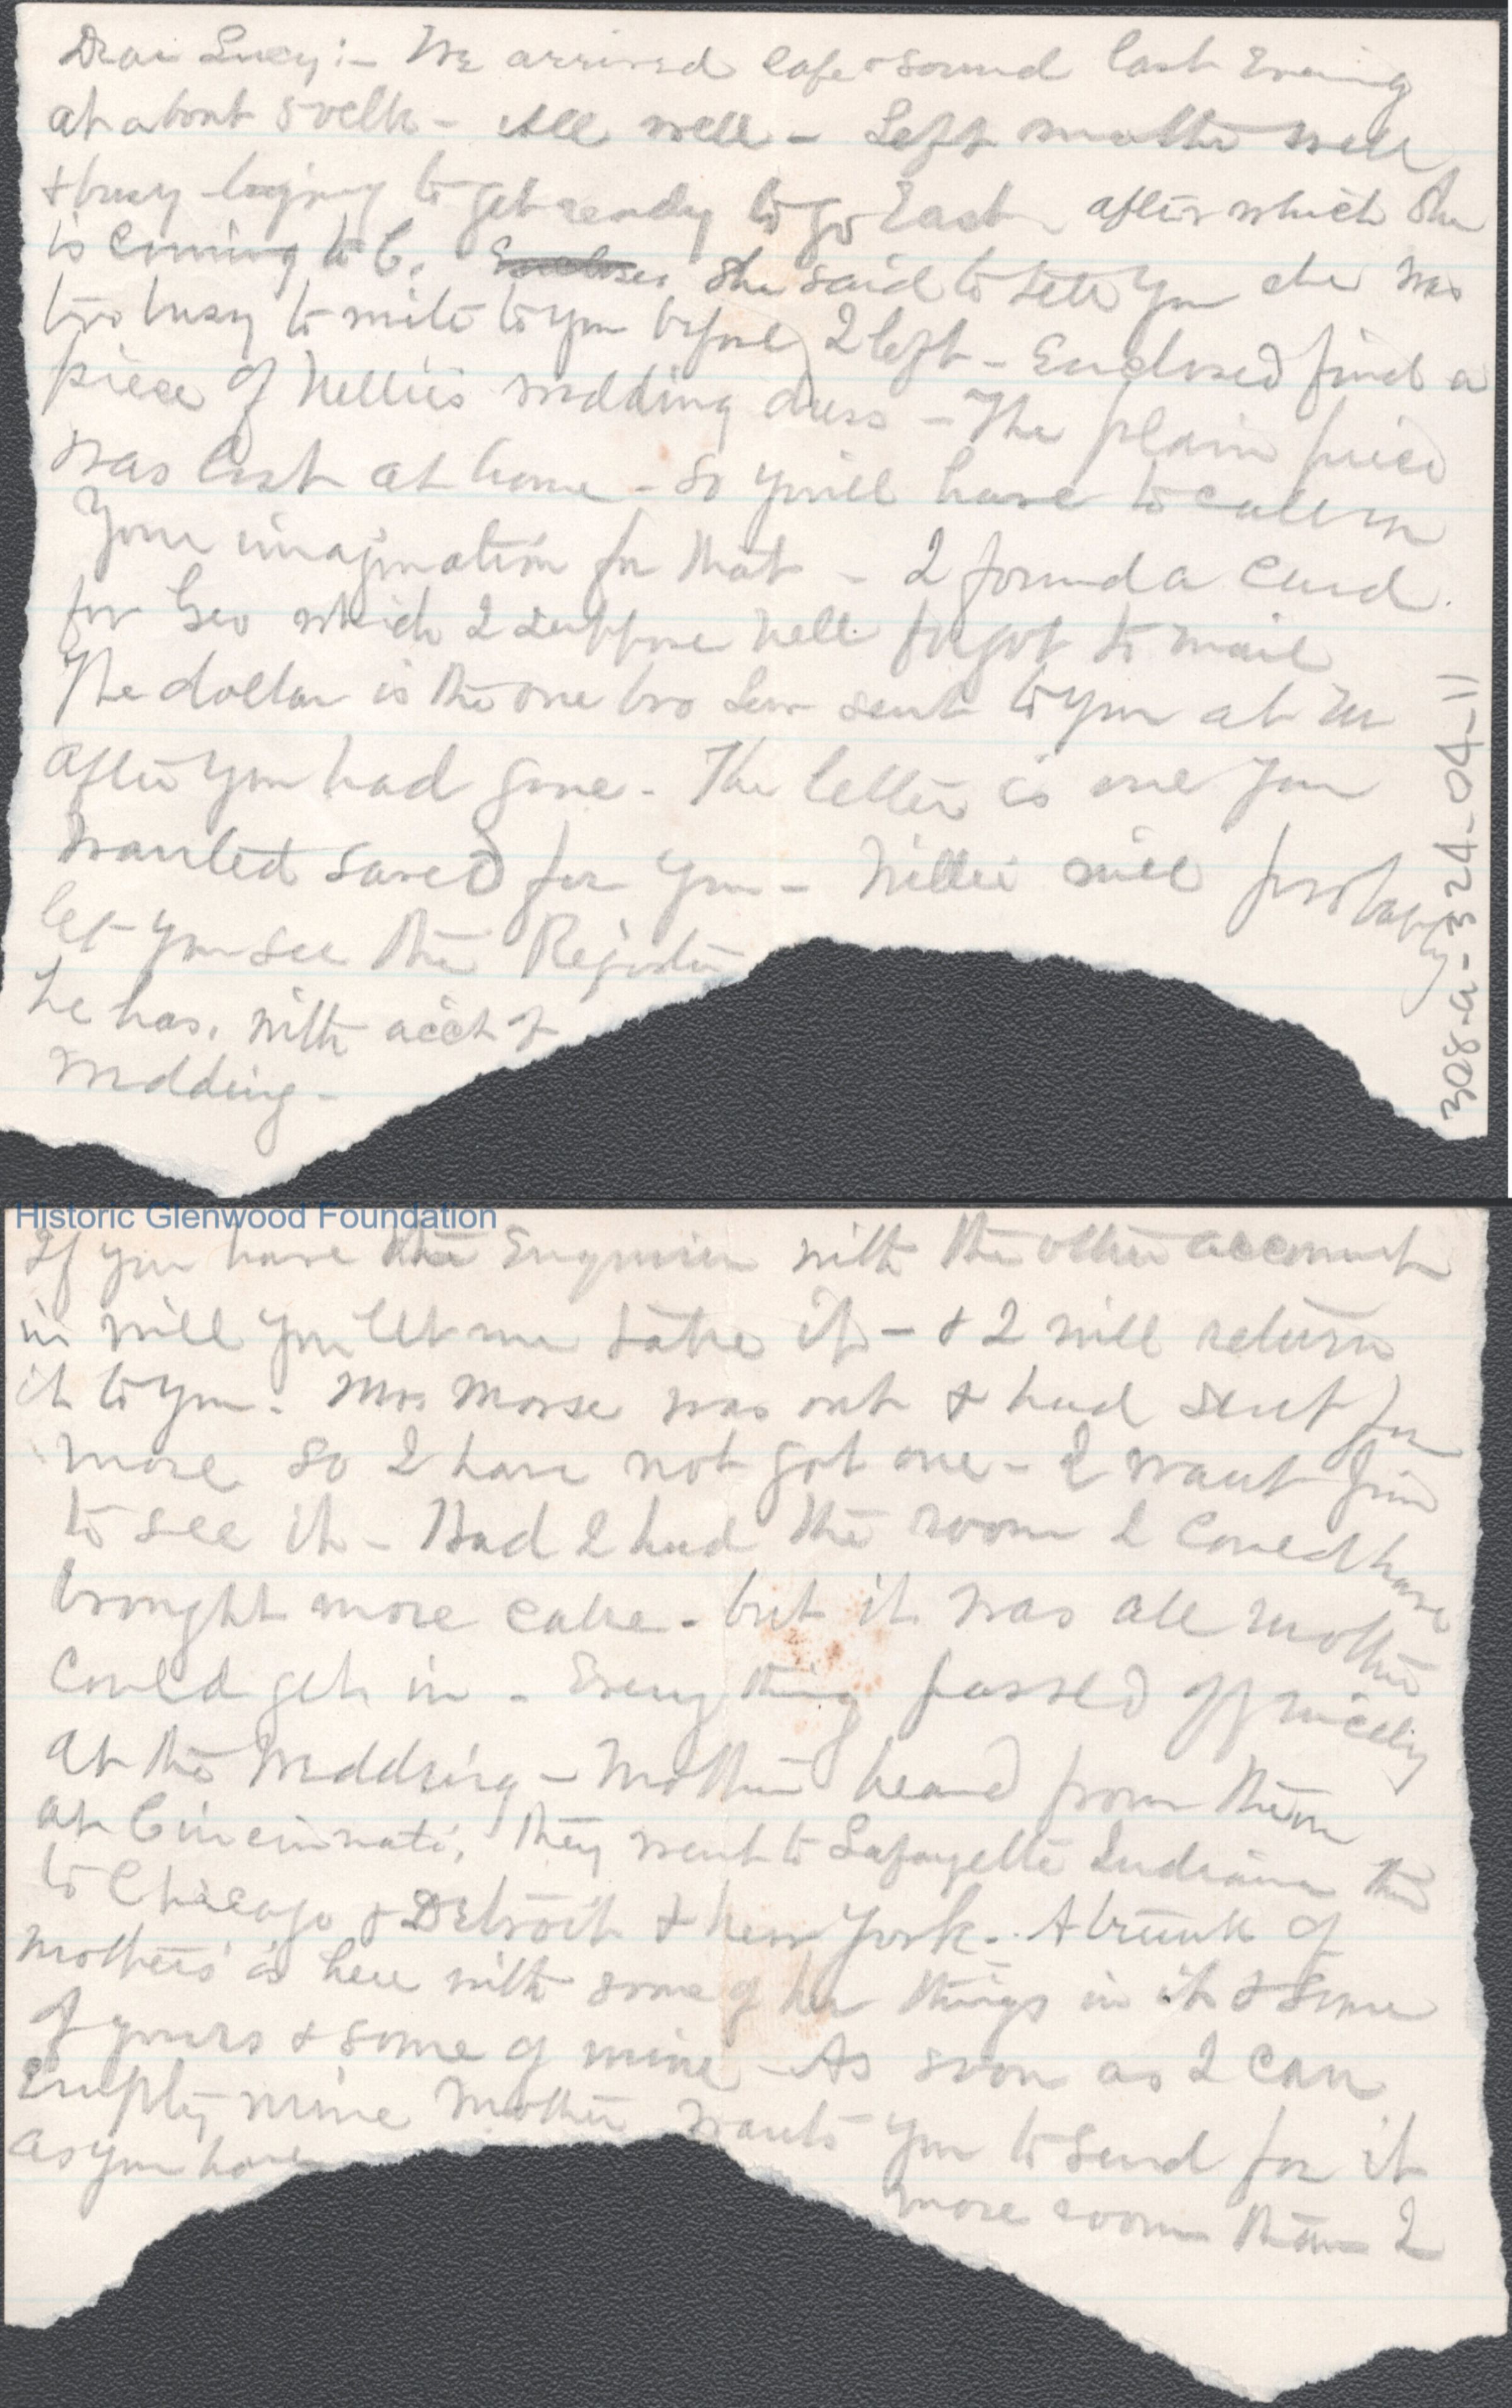 Dear Lucy:- We arrived safe & sound last Evening
at about 5 oclk - All well - Left mother well
& busy trying to get ready to go East after which she
is coming to C. She said to tell you she was
too busy to write to you before I left - Enclosed find a
piece of Nellie's wedding dress - The plain piece
was lost at home - So you'll have to call on
your imagination for that - I found a card
for Geo which I suppose Nell forgot to mail
The dollar is the one bro Lew sent to you at M
after you had gone - The letter is one you
wanted saved for you - Willie will probably
let you see the Register
he has. with acc't of
wedding -
308-a-324-04-11
Historic Glenwood Foundation
If you have the Enquirer with the other account
in will you let me take it - & I will return
it to you. Mrs Morse was out & had sent for
more so I have not got one - I want Jim
to see it - Had I had the room I could have
brought more cake - but it was all mother
could get in - Every thing passed off nicely
at the wedding - Mother heard from them
at Cincinnati, They went to Lafayette Indiana then
to Chicago & Detroit & New York. A trunk of
mother's is here with some of her things in it & some
of yours & some of mine - As soon as I can
empty mine Mother wants you to send for it
as you have
more room than I